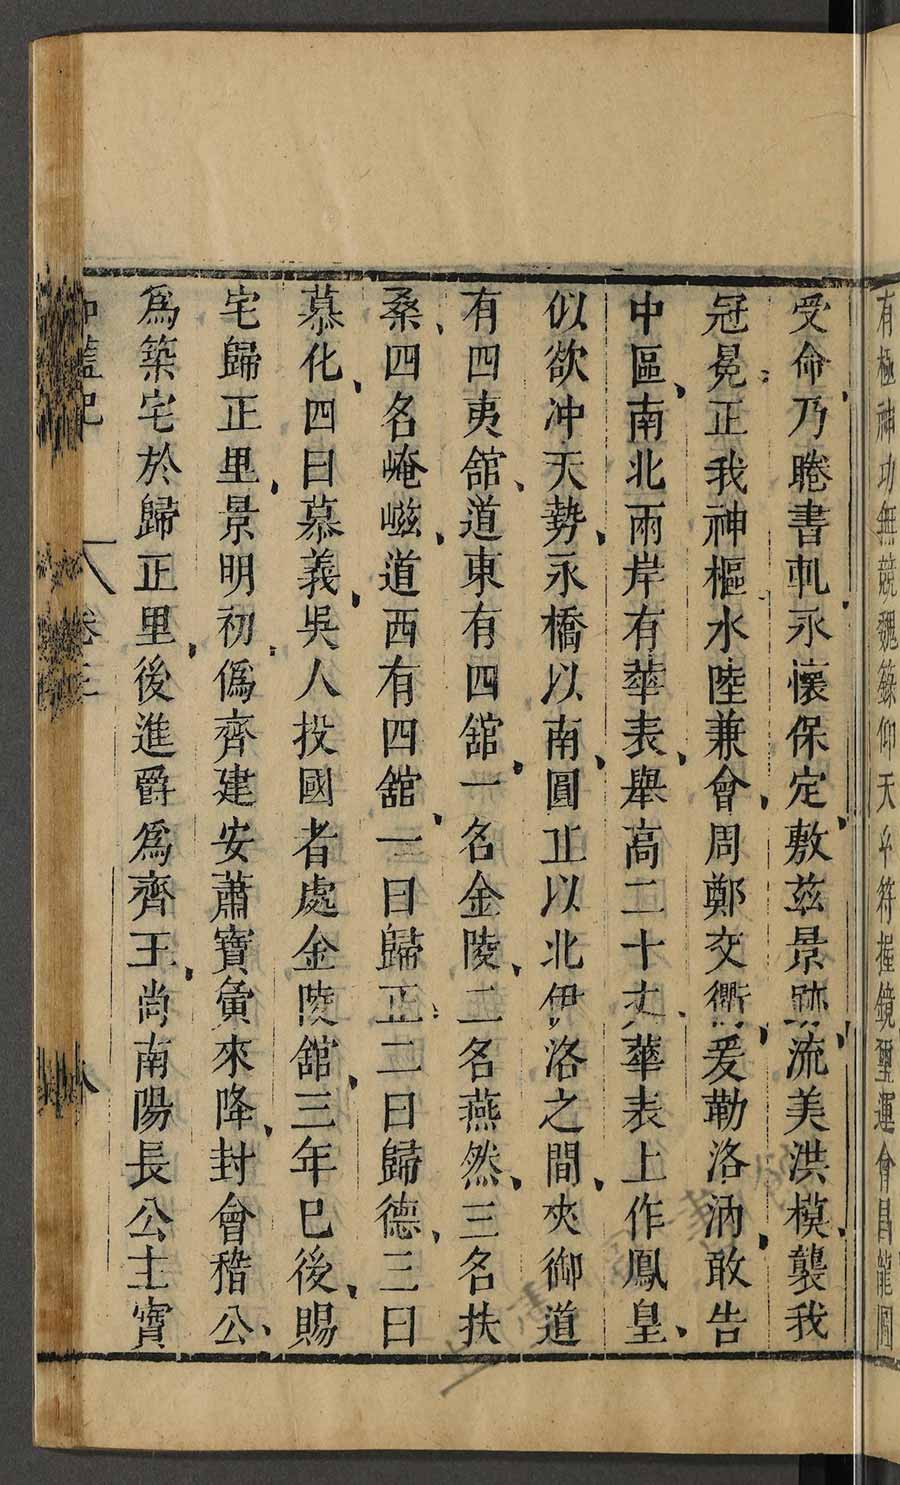 有極神功無競魏籙仰天玄符握鏡璽運會昌龍圖
受命乃睠書軌永懷保定敷茲景跡流美洪模襲我
冠冕正我神樞水陸兼會周鄭交衢爰勒洛汭敢告
中區南北兩岸有華表舉高二十丈華表上作鳳皇
似欲沖天勢永橋以南圓丘以北伊洛之間夾御道
有四夷舘道東有四舘一名金陵二名燕然三名扶
桑四名崦嵫道西有四舘一曰歸正二曰歸德三曰
慕化四曰慕義吳人投國者處金陵舘三年已後賜
宅歸正里景明初僞齊建安蕭寶夤來降封會稽公
爲築宅於歸正里後進爵爲齊王尚南陽長公主寶
伽藍記 卷三 八